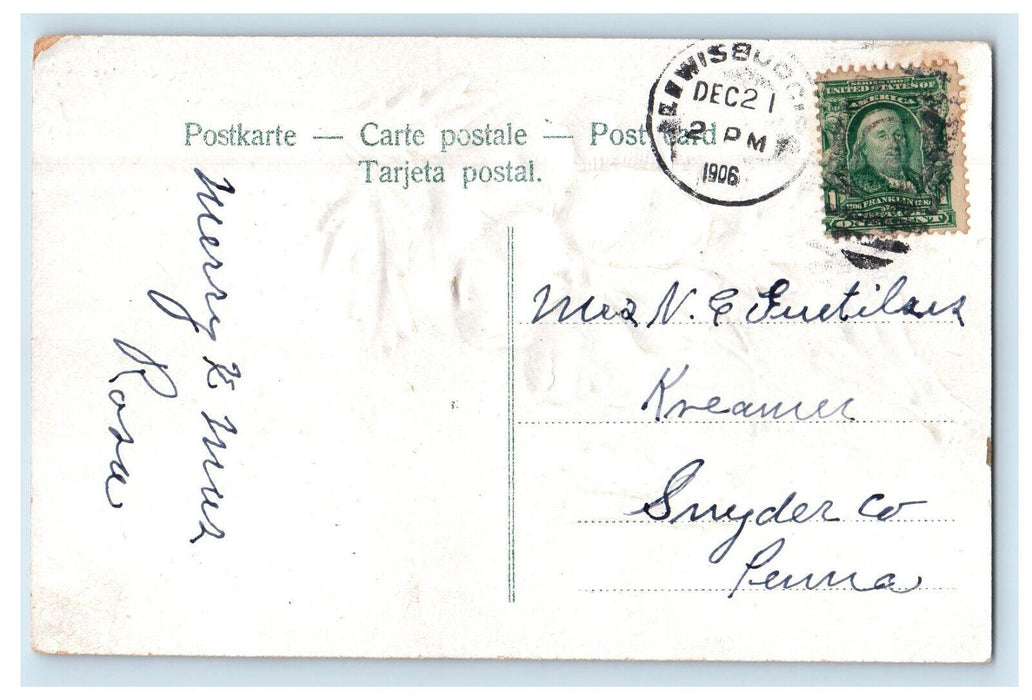 Postkarte — Carte postale — Post card
Tarjeta postal.
DEC 21
2 PM
1906
SERIES 1902
UNITED STATES OF
AMERICA
1 1
FRANKLIN
ONE CENT
Merry X mas
Rosa
Mrs N. E
Kreamer
Snyder Co
Penna